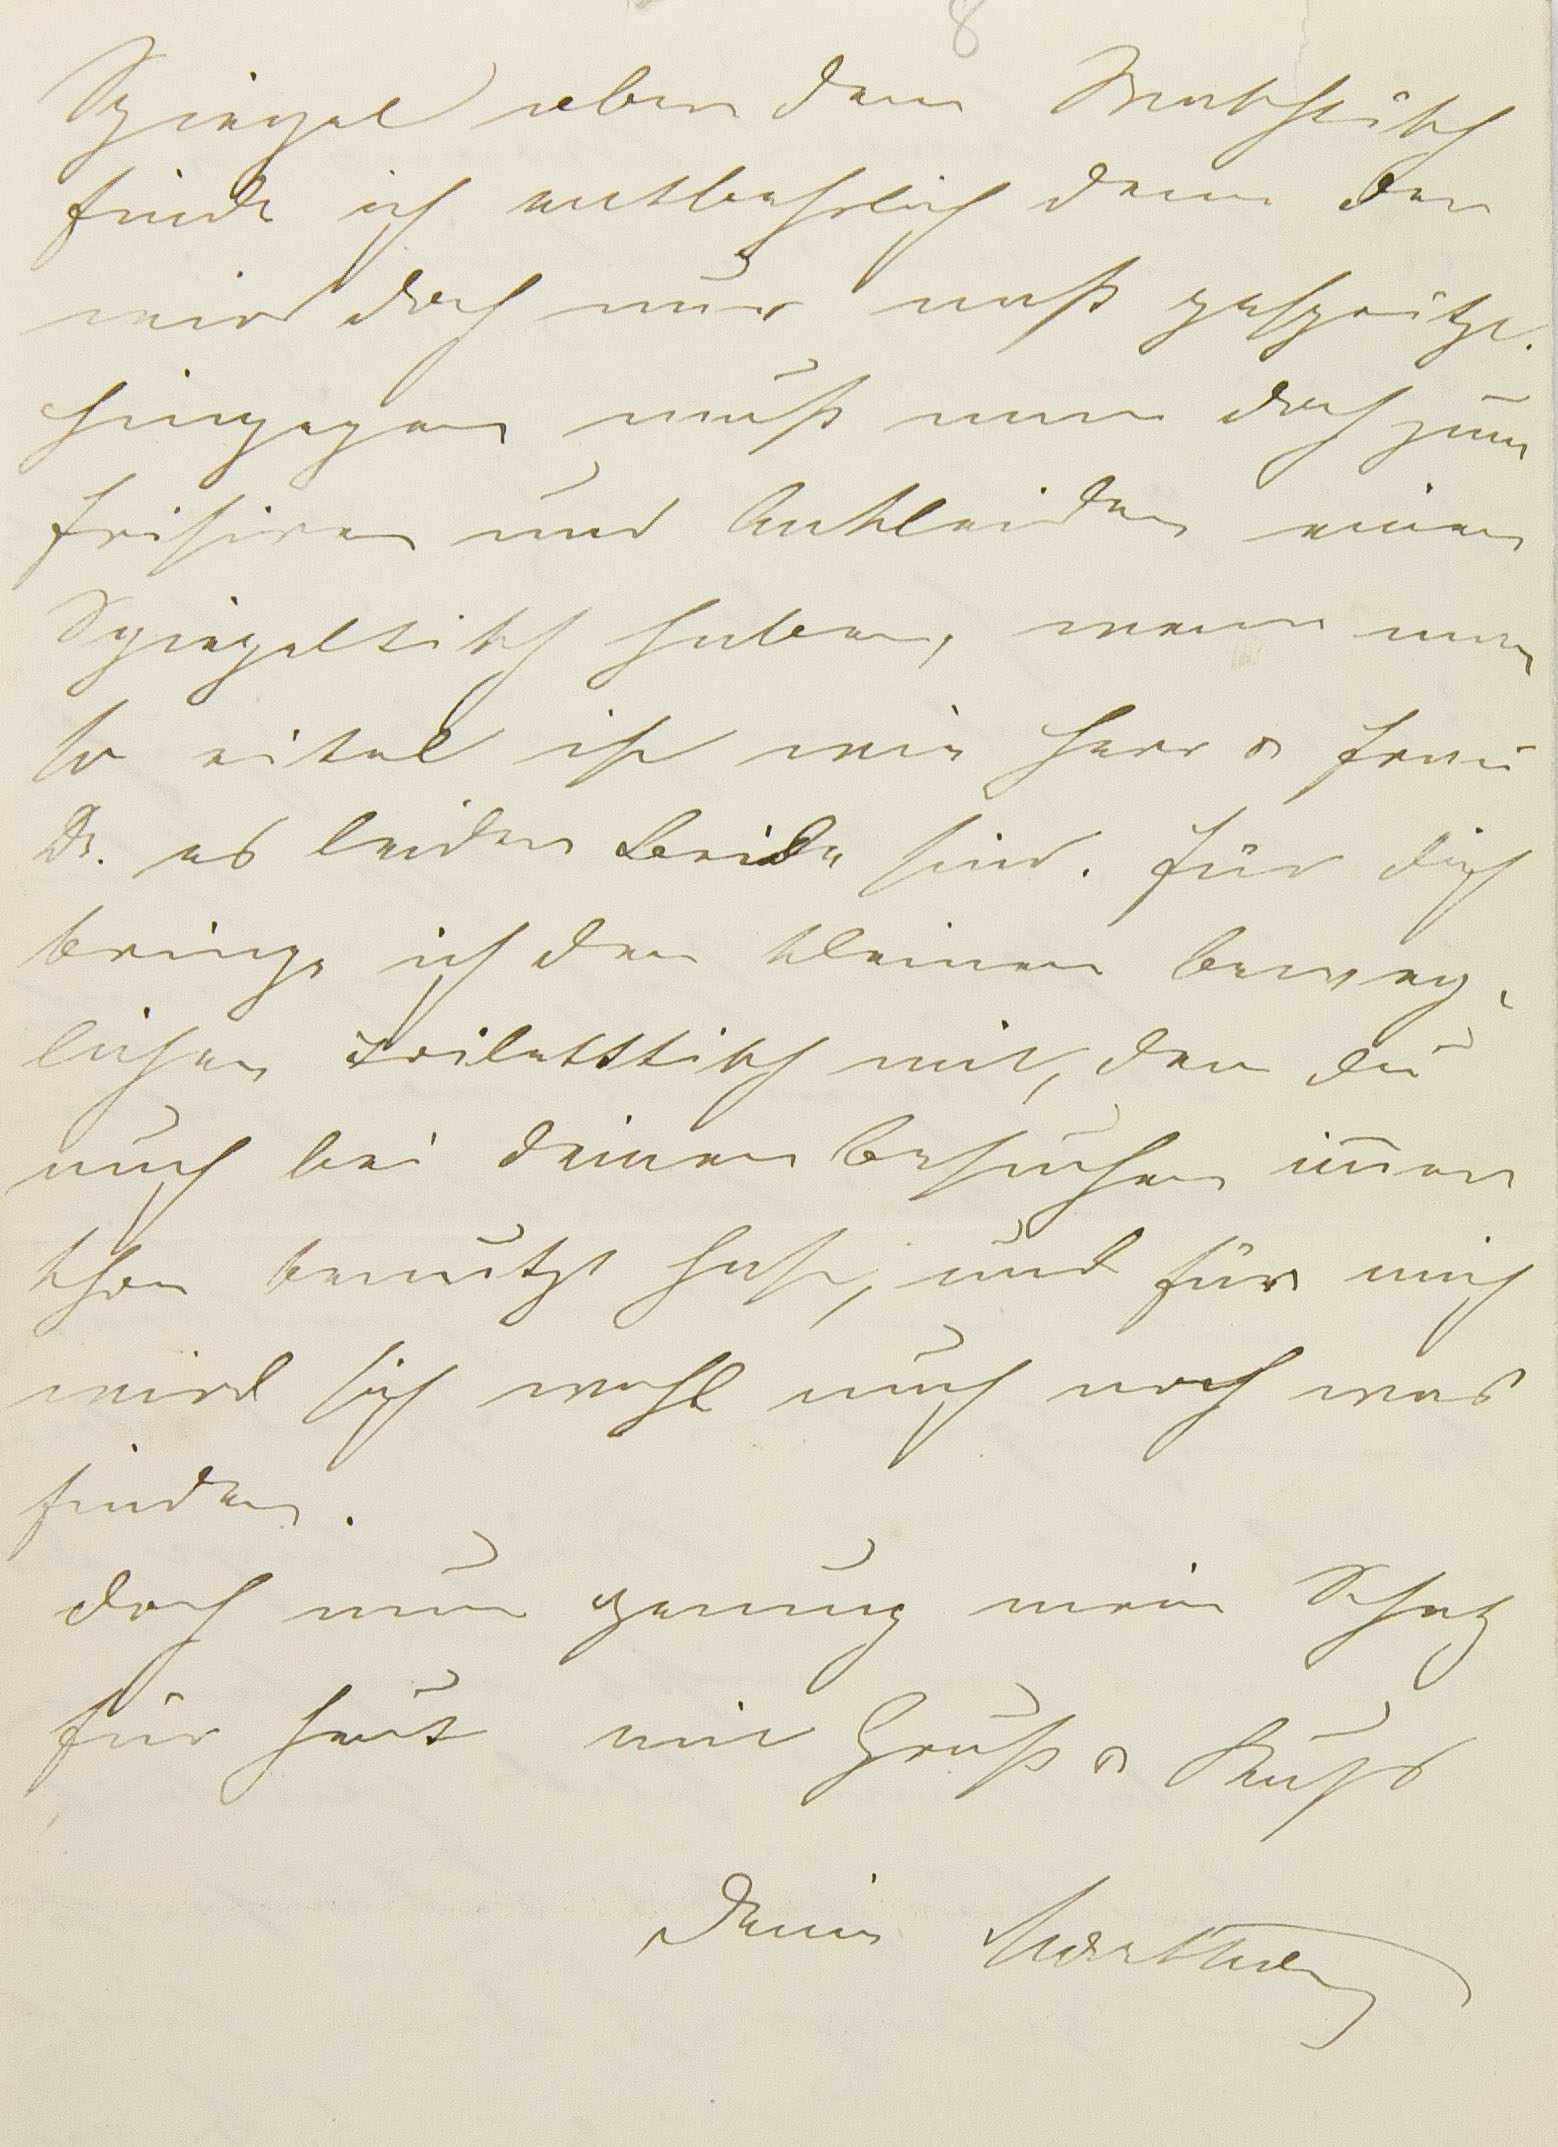 8
Spiegel über dem Waschtisch
finde ich entbehrlich denn der
wird doch nur naß gespritzt.
hingegen muß man doch zum
frisiren und Ankleiden einen
Spiegeltisch haben, wenn man
so eitel ist wie Herr & Frau
Dr. es leider Beide sind. Für dich
bringe ich den kleinen beweg-
lichen Toiletttisch mit, den du
auch bei deinen Besuchen immer
schon benutzt hast, und für mich
wird sich wohl auch noch was
finden.
Doch nun genug mein Schatz
für heut mit Gruß & Kuß
Dein